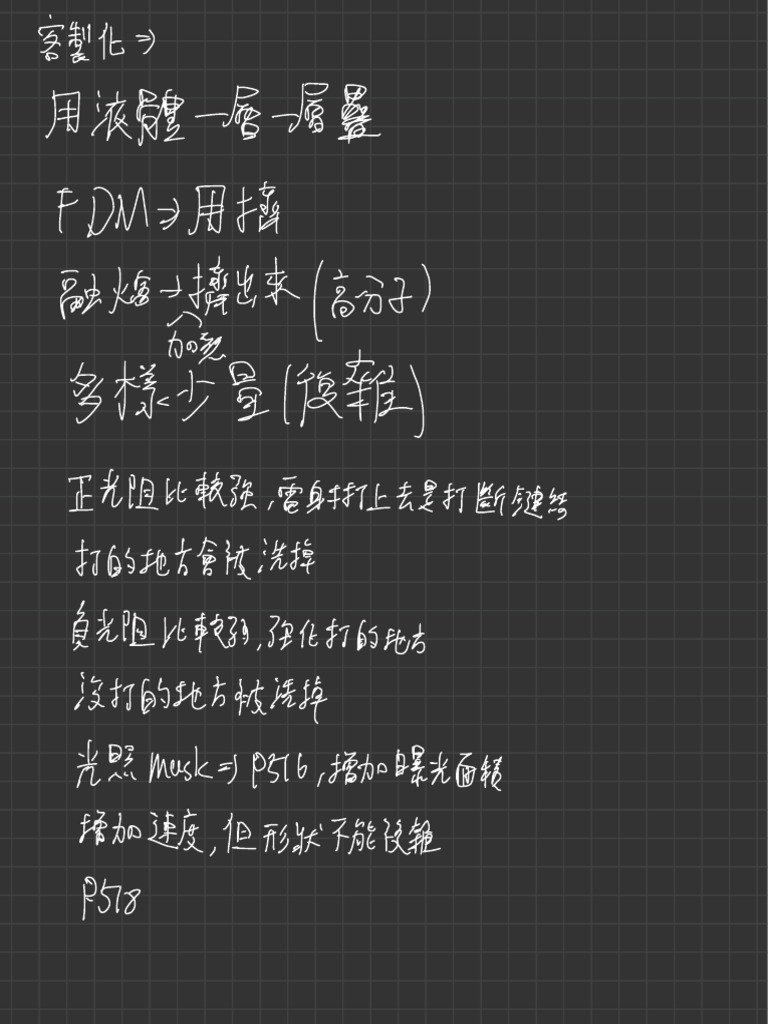 客製化⇒
用液體一層一層疊
FDM⇒用擠
融熔→擠出來(高分子)
加熱
多樣少量(複雜)
正光阻比較強,雷射打上去是打斷鏈結
打的地方會被洗掉
負光阻比較弱,強化打的地方
沒打的地方被洗掉
光照mask⇒P516,增加曝光面積
增加速度,但形狀不能複雜
P518